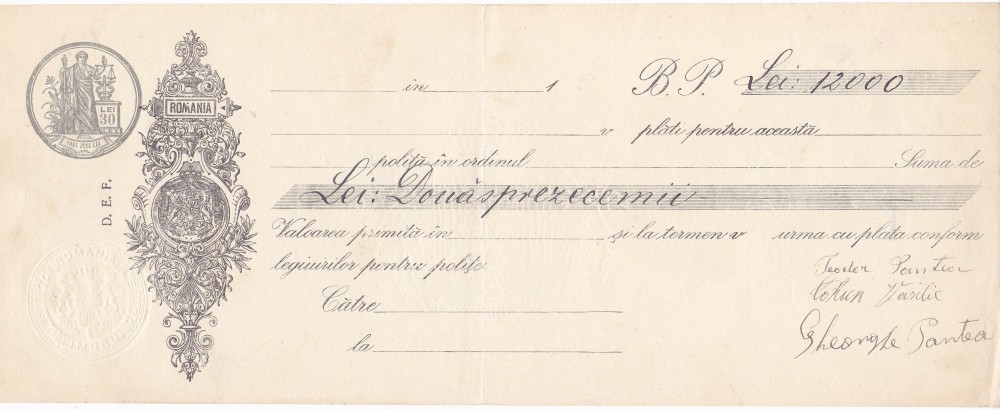 ROMANIA
LEI
30
D. E. F.
în 1 B. P. Lei: 12000
v plăti pentru această
poliță în ordinul Suma de
Lei: Douăsprezecemii
Valoarea primită în și la termen v urma cu plata conform
legiuirilor pentru polițe
Teodor Pantea
Vasilie
Către
Gheorghe Pantea
la